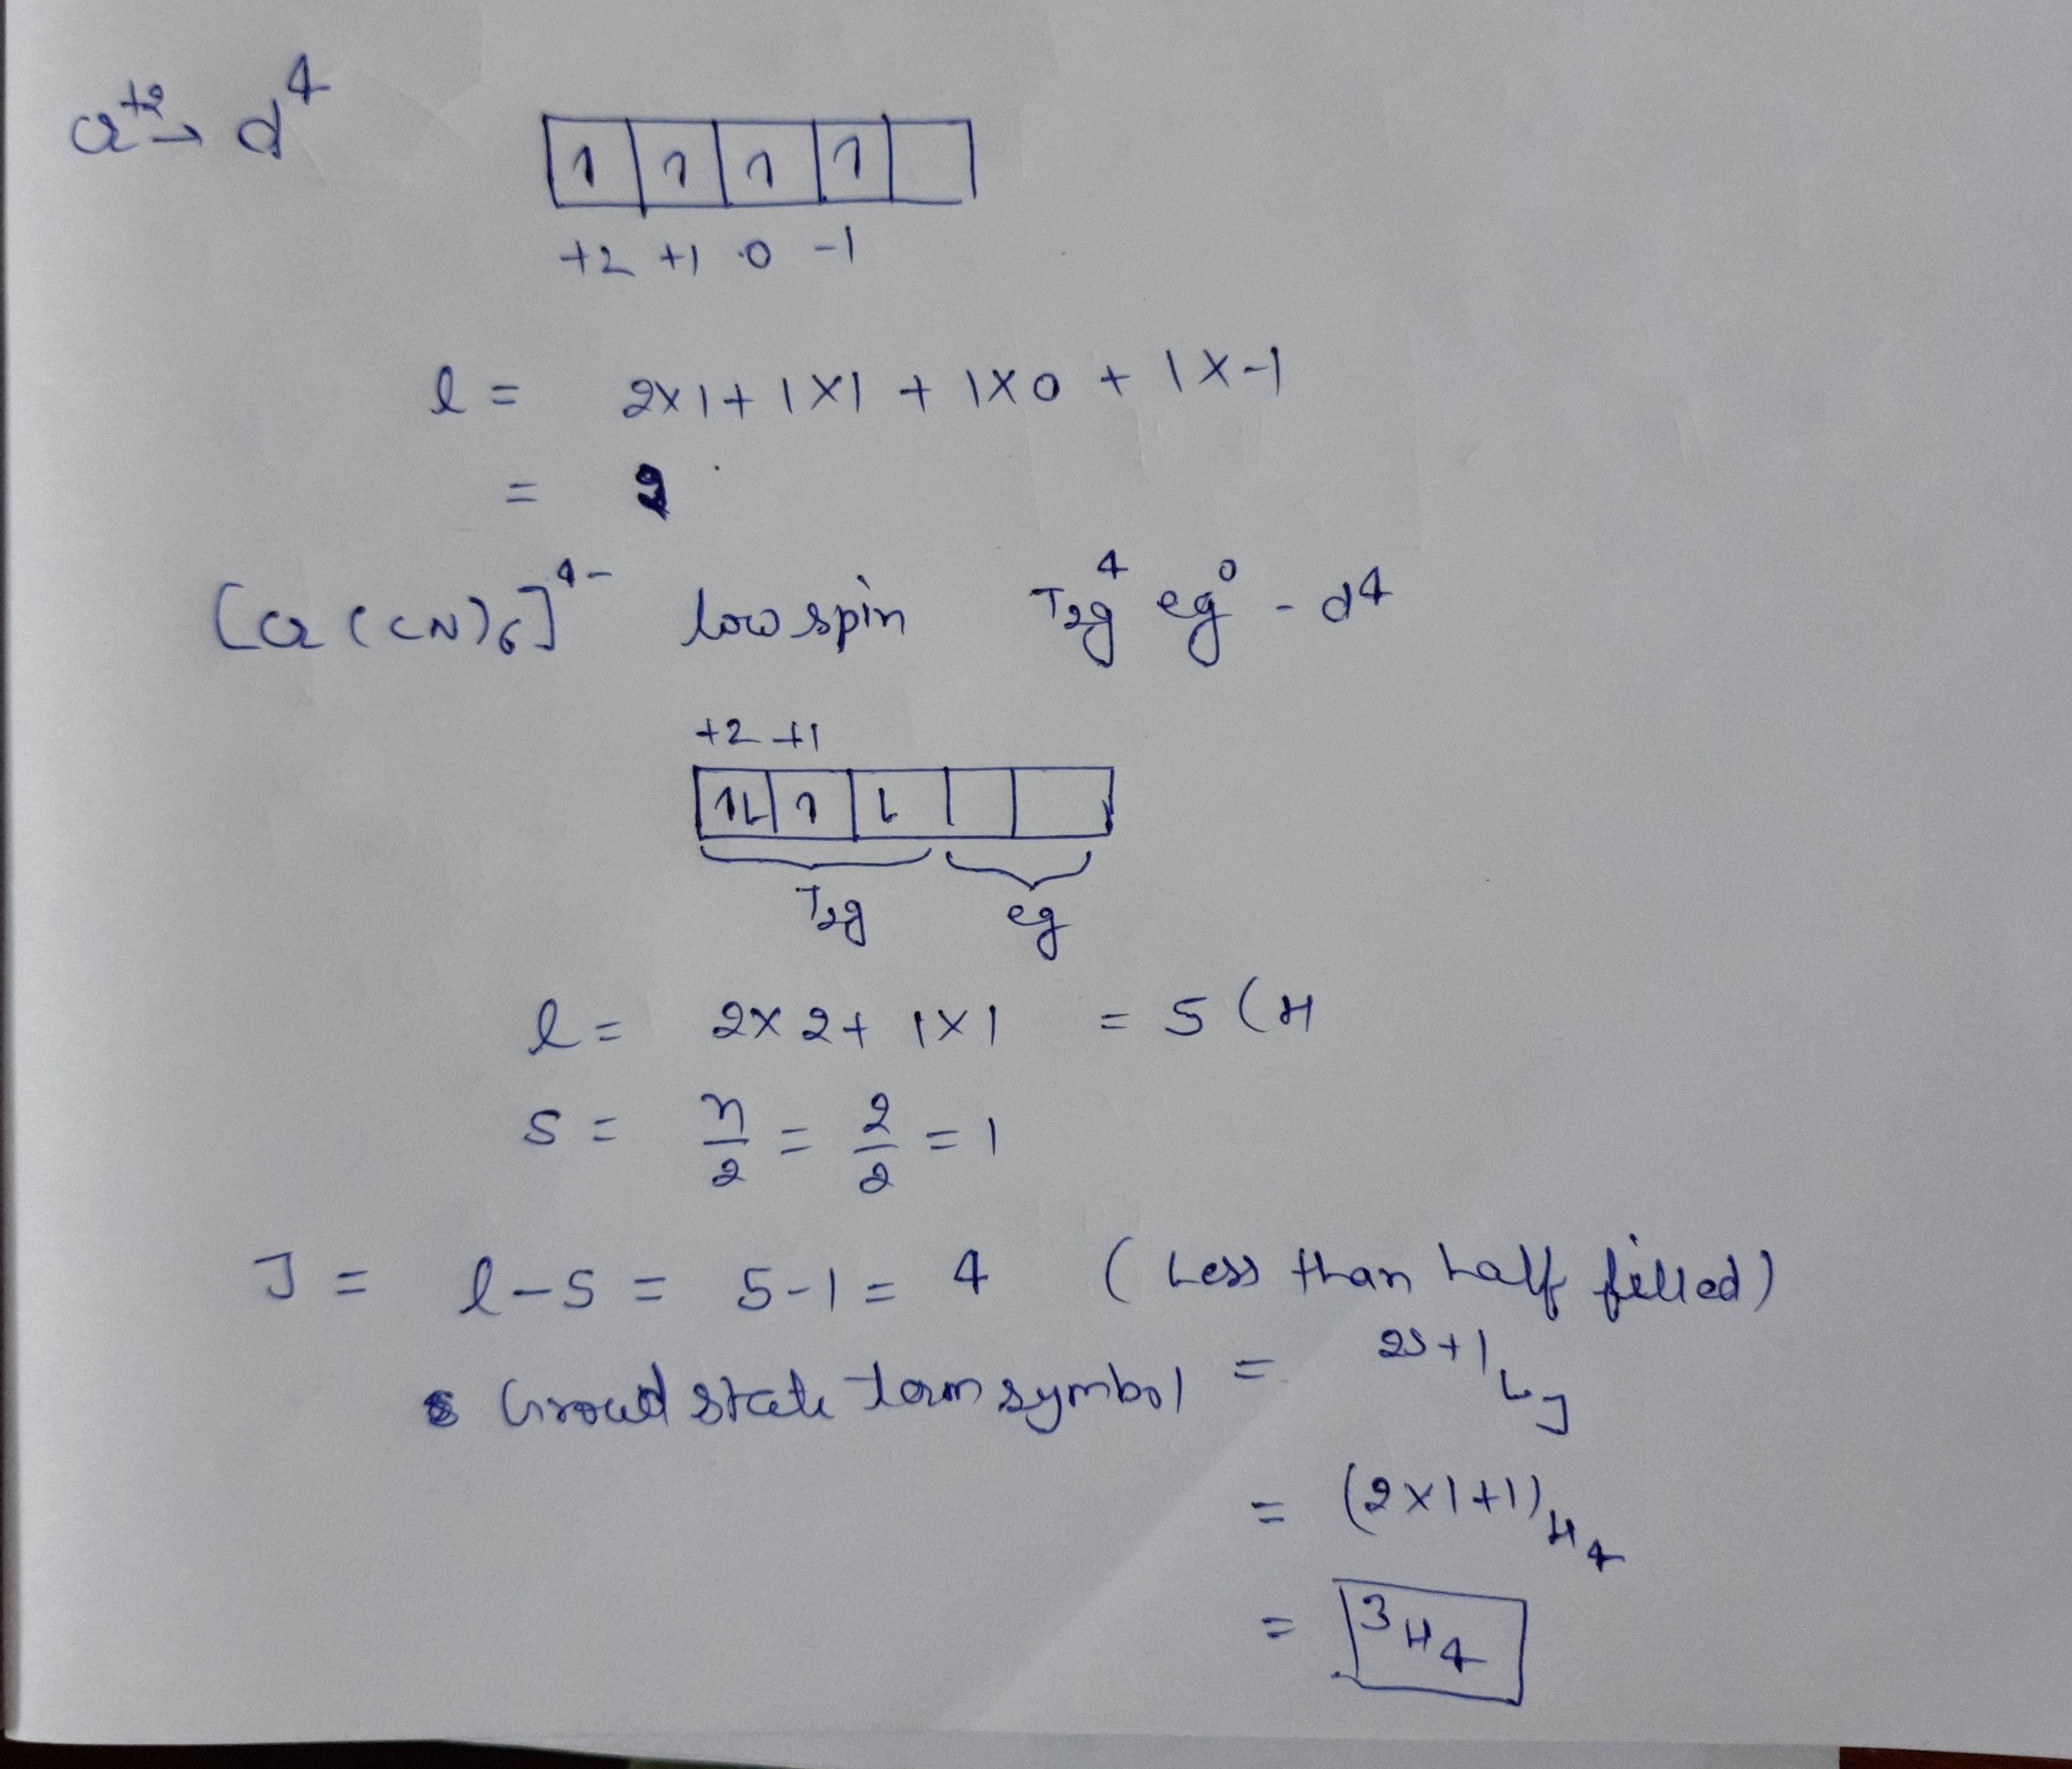 Cr⁺² → d⁴
1 1 1 1
+2 +1 0 -1
l = 2×1 + 1×1 + 1×0 + 1×-1
= 2
[Cr(CN)₆]⁴⁻ low spin T₂g⁴ eg⁰ - d⁴
+2 +1
1L 1 L
T₂g eg
l = 2×2 + 1×1 = 5 (H
S = n/2 = 2/2 = 1
J = l-S = 5-1 = 4 (Less than half filled)
Ground state term symbol = ²ˢ⁺¹L_J
= (2×1+1)H₄
= ³H₄